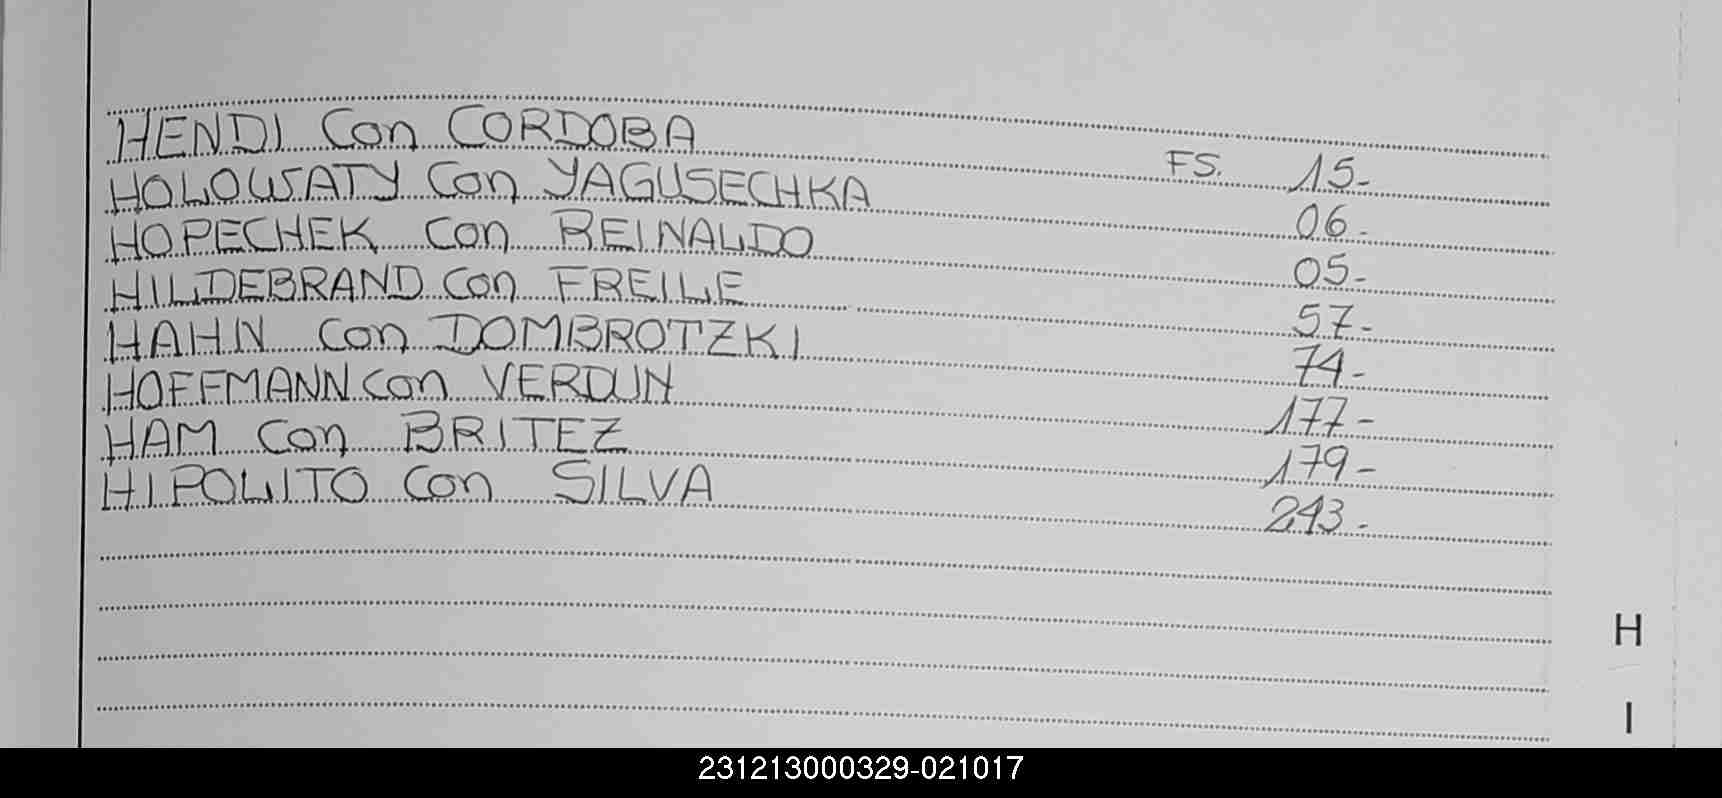 HENDI con CORDOBA FS. 15-
HOLOWSATY con YAGUSECHKA 06-
HOPECHEK con REINALDO 05-
HILDEBRAND con FREILE 57-
HAHN con DOMBROTZKI 74-
HOFFMANN con VERDUN 177-
HAM con BRITEZ 179-
HIPOLITO con SILVA 243-
H
I
231213000329-021017